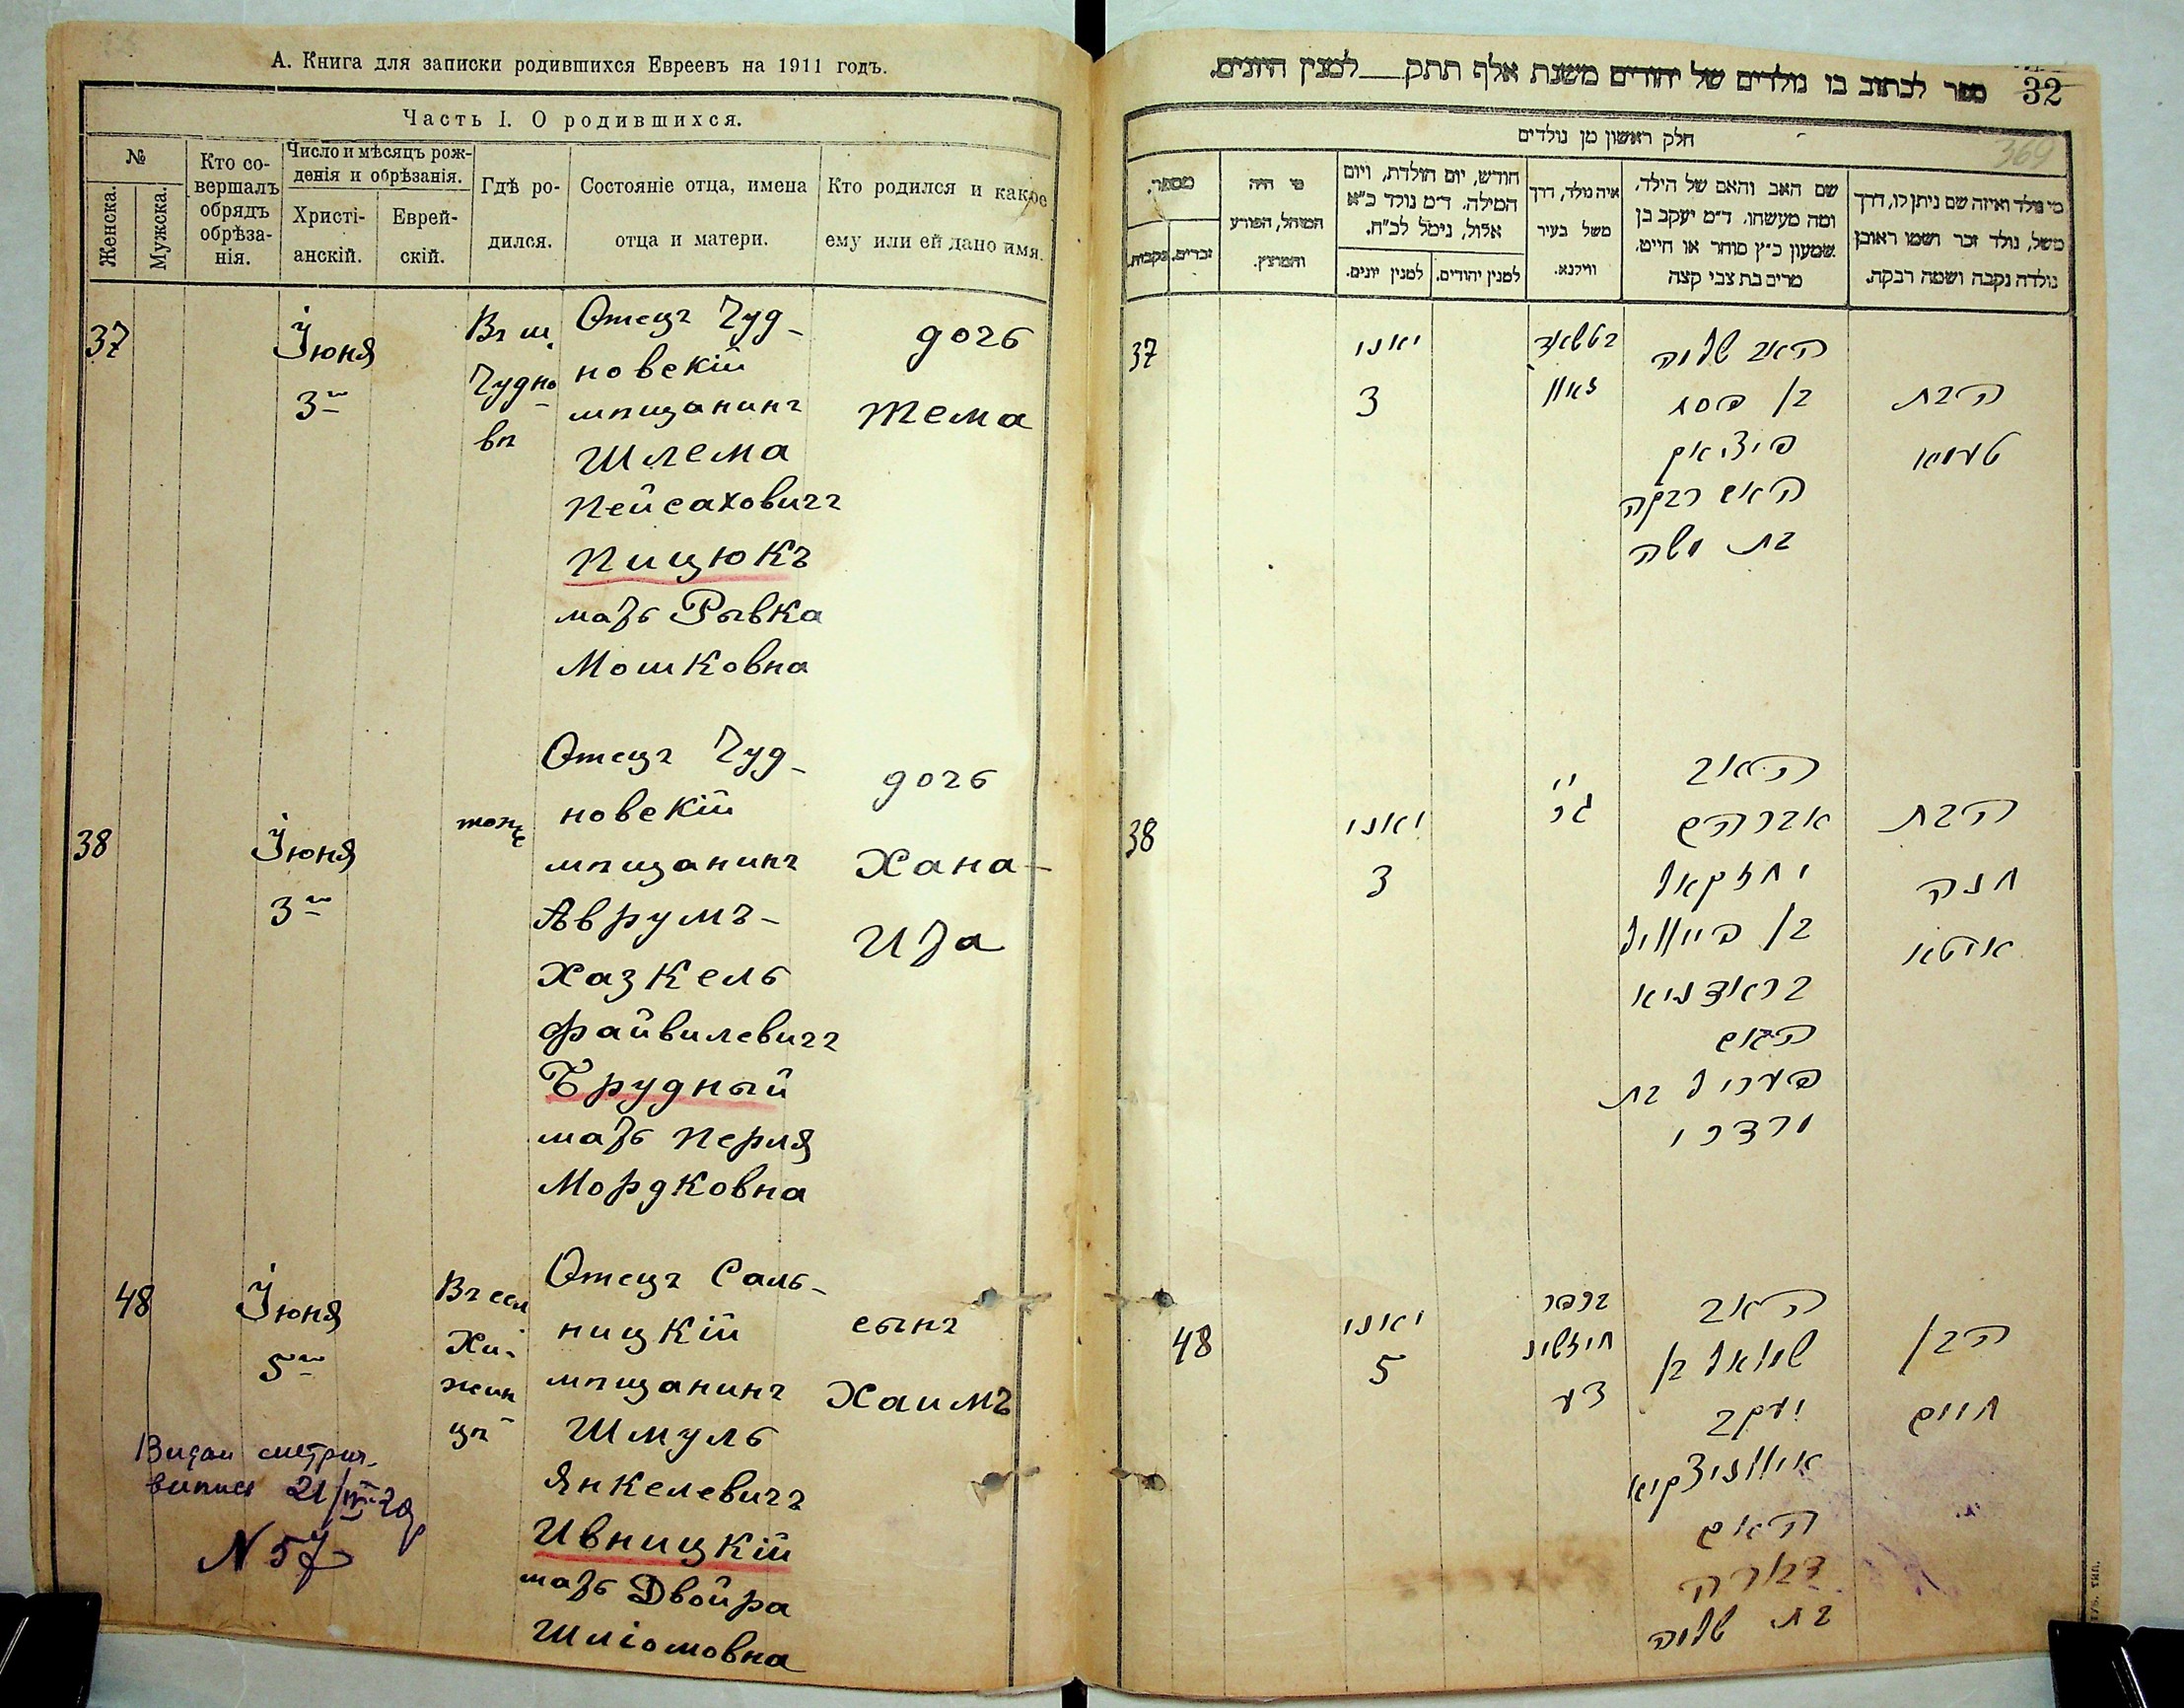 А. Книга для записки родившихся Евреевъ на 1911 годъ.
Часть I. О родившихся.
№
Женска.
Мужска.
Кто со-
вершалъ
обрядъ
обрѣза-
нія.
Число и мѣсяцъ рож-
денія и обрѣзанія.
Христі-
анскій.
Еврей-
скій.
Гдѣ ро-
дился.
Состояніе отца, имена
отца и матери.
Кто родился и какое
ему или ей дано имя.
37
Іюня
3го
Въ м.
Чудно
вѣ
Отецъ Чуд-
новскій
мѣщанинъ
Шлема
Пейсаховичъ
Пицюкъ
мать Рывка
Мошковна
дочь
Тема
38
Іюня
3го
тоже
Отецъ Чуд-
новскій
мѣщанинъ
Аврумъ-
Хазкель
Файвилевичъ
Брудный
мать Перля
Мордковна
дочь
Хана-
Ита
48
Іюня
5го
Въ сел
Хи-
жин
цѣ
Отецъ Саль-
ницкій
мѣщанинъ
Шмуль
Янкелевичъ
Ивницкій
мать Двойра
Шліомовна
сынъ
Хаимъ
Видан метрич.
випись 21/
N 57
32
ספר לכתוב בו נולדים של יהודים משנת אלף תתק למנין היונים.
369
חלק ראשון מן נולדים
מספר.
נקבות.
זכרים.
מי היה
המוהל, הפורע
והמוצץ.
חודש, יום הולדת, ויום
המילה. ד״מ נולד כ״א
אלול, נימל לכ״ח.
למנין יונים.
למנין יהודים.
איה נולד, דרך
משל בעיר
ווילנא.
שם האב והאם של הילד,
ומה מעשהו. ד״מ יעקב בן
שמעון כ״ץ סוחר או חייט.
מרים בת צבי קצה
מי נולד ואיזה שם ניתן לו, דרך
משל, נולד זכר ושמו ראובן
נולדה נקבה ושמה רבקה.
37
יאני
3
האב שלמה
בן פסח
פיציאק
האם רבקה
בת משה
הבת
טעמא
38
יאני
3
האב
אברהם
יחזקאל
בן פייוויל
בראדניא
האם
פעריל בת
מרדכי
הבת
חנה
איטא
48
יאני
5
בכפר
חיזשינ
צע
האב
שמואל בן
יעקב
איווניצקיא
האם
דבורה
בת שלמה
הבן
חיים